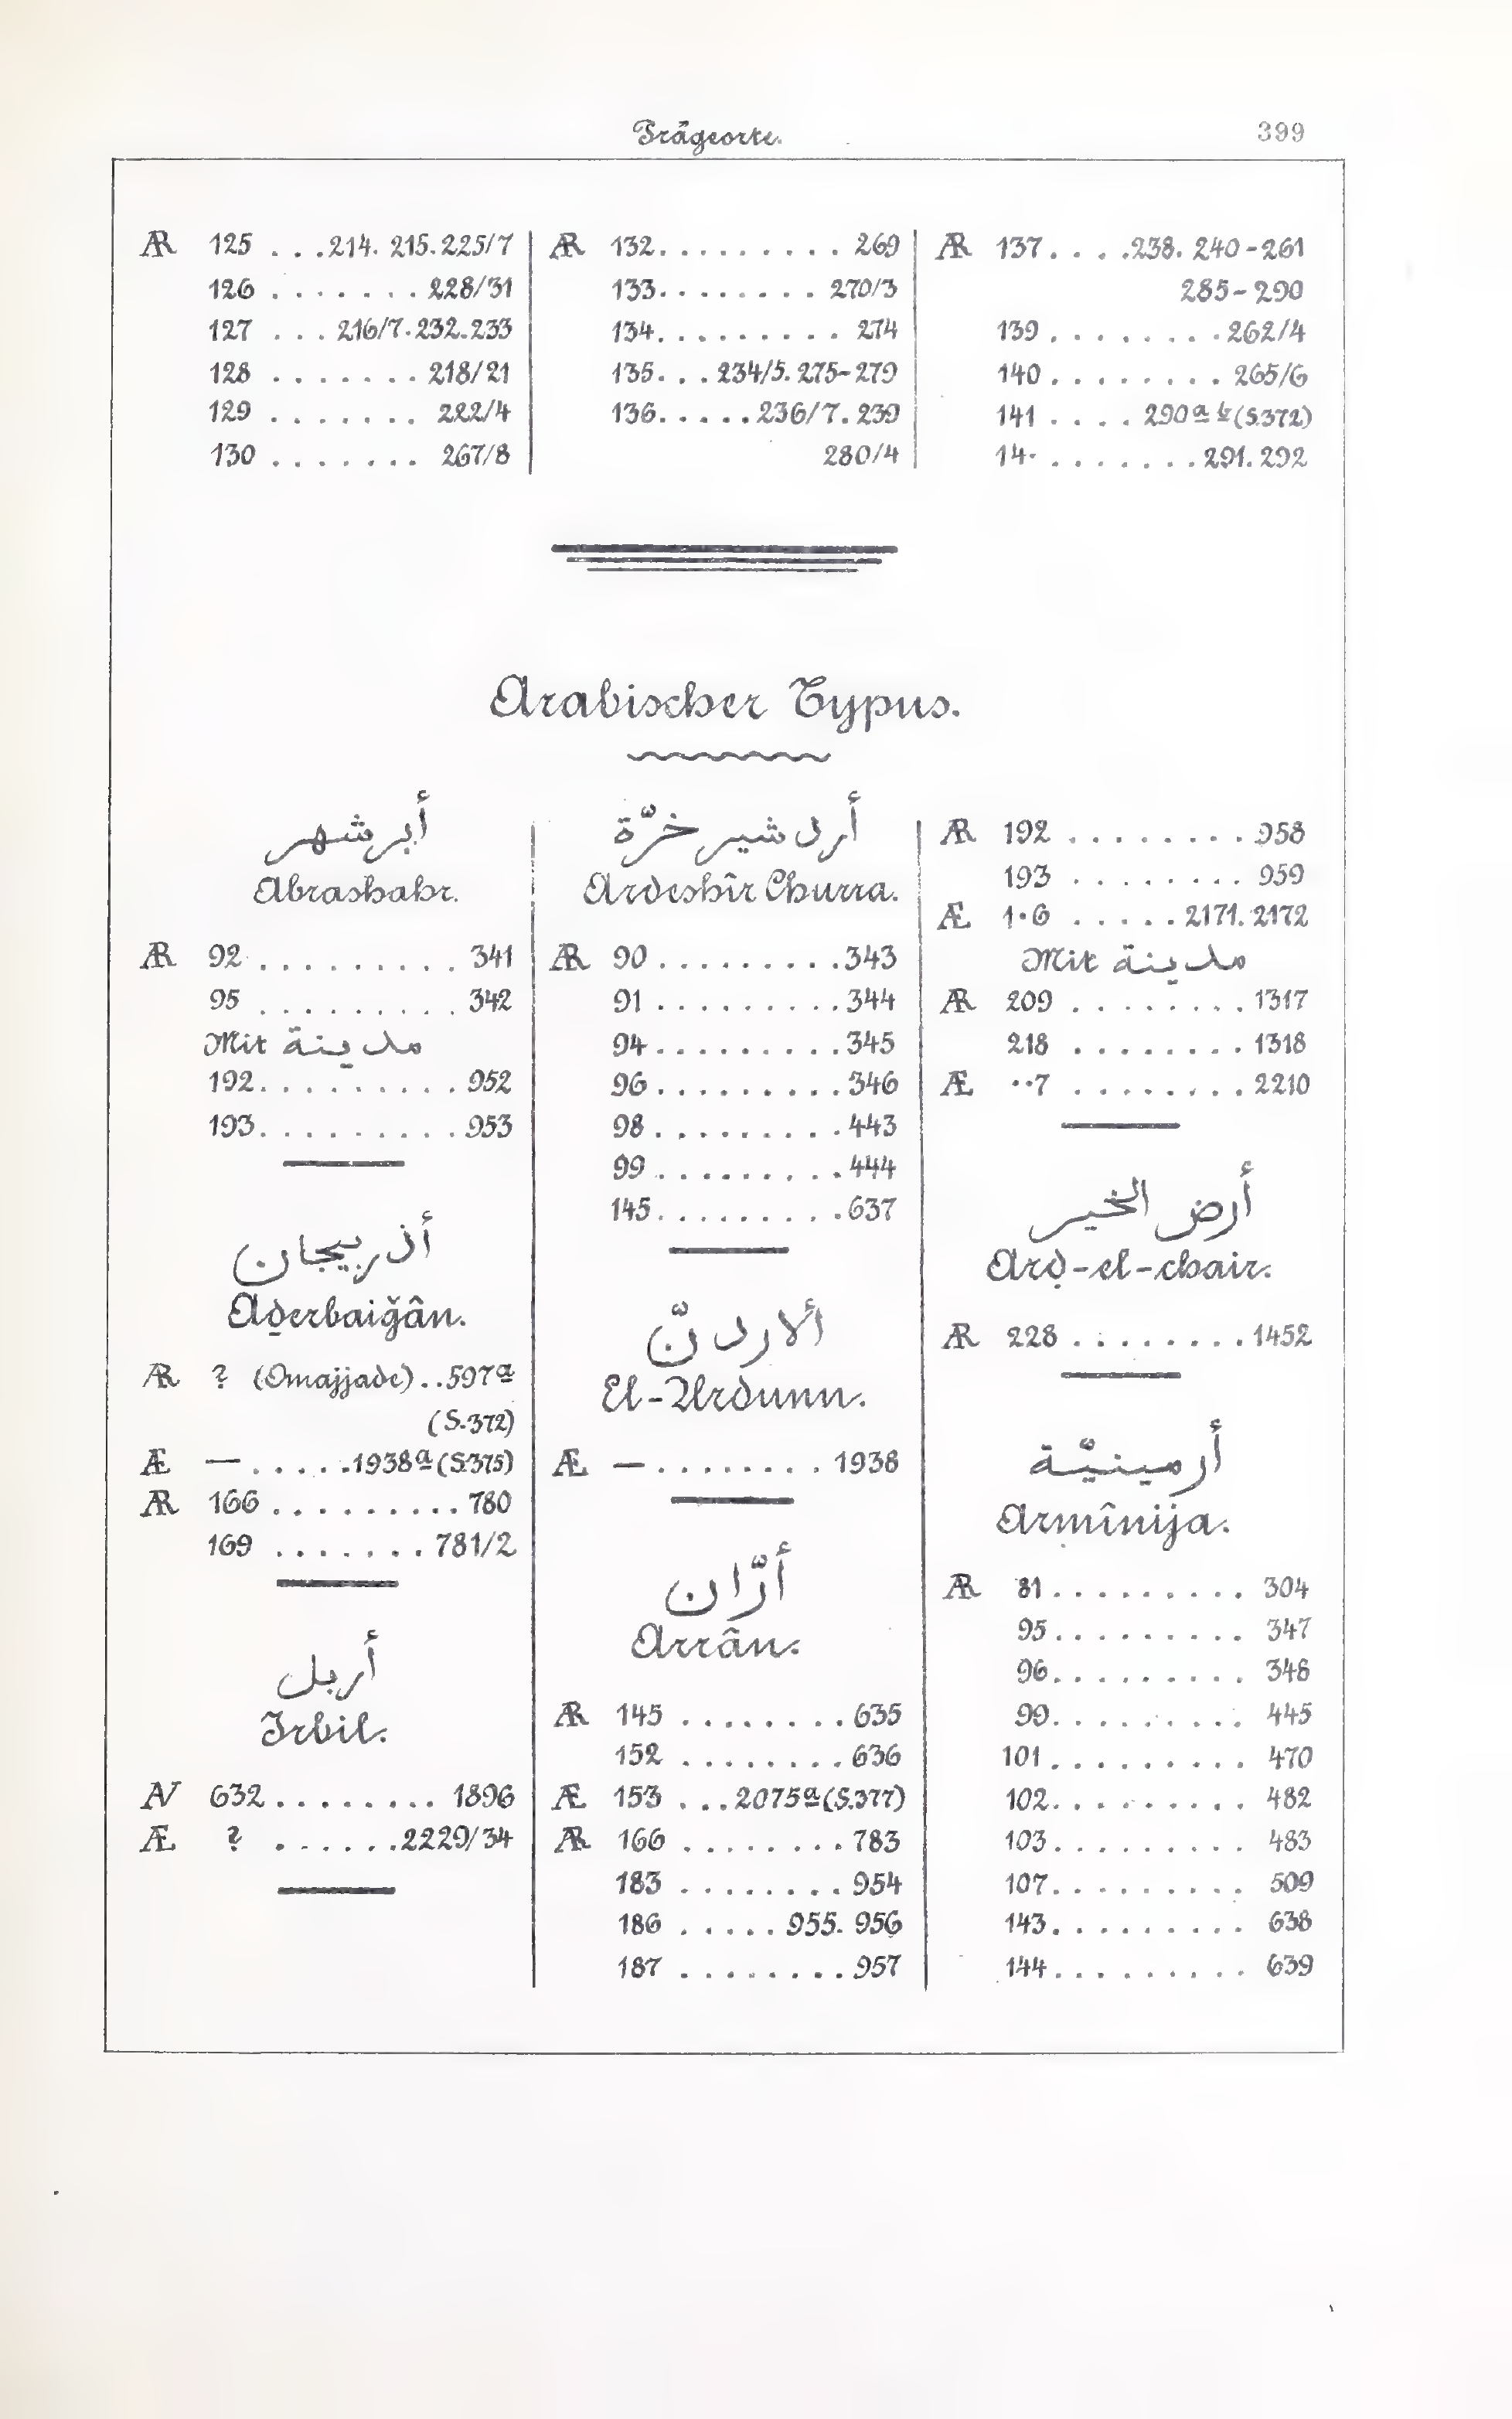 Prägeorte.
399
AR 125 . . .214. 215. 225/7
126 . . . . . . . 228/31
127 . . . 216/7. 232. 233
128 . . . . . . . 218/21
129 . . . . . . . 222/4
130 . . . . . . . 267/8
AR 132. . . . . . . . . 269
133. . . . . . . . 270/3
134. . . . . . . . . 274
135. . . 234/5. 275-279
136. . . . .236/7. 239
280/4
AR 137. . . .238. 240-261
285-290
139 . . . . . . . .262/4
140 . . . . . . . . 265/6
141 . . . . 290a b (S.372)
14· . . . . . . .291. 292
Arabischer Typus.
أبرشهر
Abrashahr.
AR 92 . . . . . . . . . . 341
95 . . . . . . . . . . 342
Mit مدينة
192. . . . . . . . . . 952
193. . . . . . . . . .953
أذربيجان
Aḏerbaiǧân.
AR ? (Omajjade) . .597a
(S.372)
Æ — . . . . .1938a (S.375)
AR 166 . . . . . . . . . 780
169 . . . . . . . 781/2
أربل
Irbil.
AV 632 . . . . . . . . 1896
Æ ? . . . . . .2229/34
أردشير خرّة
Ardeshîr Churra.
AR 90 . . . . . . . . .343
91 . . . . . . . . .344
94 . . . . . . . . .345
96 . . . . . . . . .346
98 . . . . . . . . .443
99 . . . . . . . . .444
145. . . . . . . . .637
ألاردنّ
El-Urdunn.
Æ — . . . . . . . . 1938
أرّان
Arrân.
AR 145 . . . . . . . .635
152 . . . . . . . .636
Æ 153 . . .2075a (S.377)
AR 166 . . . . . . . .783
183 . . . . . . . . 954
186 . . . . . 955. 956
187 . . . . . . . .957
AR 192 . . . . . . . . .958
193 . . . . . . . . . 959
Æ 1·6 . . . . . 2171. 2172
Mit مدينة
AR 209 . . . . . . . . .1317
218 . . . . . . . . . 1318
Æ ··7 . . . . . . . . .2210
أرض الخير
Arḍ-el-chair.
AR 228 . . . . . . . . .1452
أرمينيّة
Armînija.
AR 81 . . . . . . . . . . 304
95 . . . . . . . . . . 347
96. . . . . . . . . . 348
99. . . . . . . . . . 445
101 . . . . . . . . . . 470
102. . . . . . . . . . 482
103. . . . . . . . . . 483
107. . . . . . . . . . 509
143. . . . . . . . . . 638
144. . . . . . . . . . 639